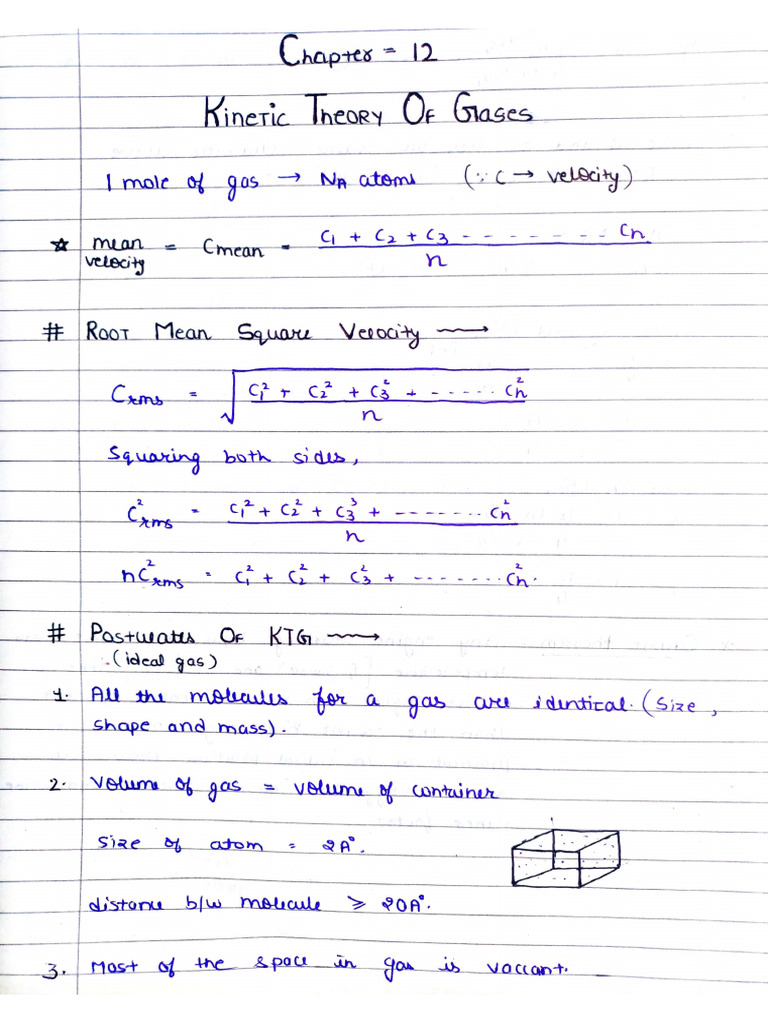 Chapter = 12
Kinetic Theory Of Gases
1 mole of gas → NA atoms (∵ C → velocity)
☆ mean velocity = Cmean = C1 + C2 + C3 - - - - - - - - Cn / n
# Root Mean Square Velocity ⟶
Crms = √(C1² + C2² + C3² + - - - - - Cn² / n)
Squaring both sides,
C²rms = C1² + C2² + C3³ + - - - - - - - Cn² / n
nC²rms = C1² + C2² + C3² + - - - - - - - Cn².
# Postulates Of KTG ⟶
(ideal gas)
1. All the molecules for a gas are identical. (Size,
shape and mass).
2. Volume of gas = volume of container
Size of atom = 2A°.
distance b/w molecule ≥ 20A°.
3. Most of the space in gas is vaccant.